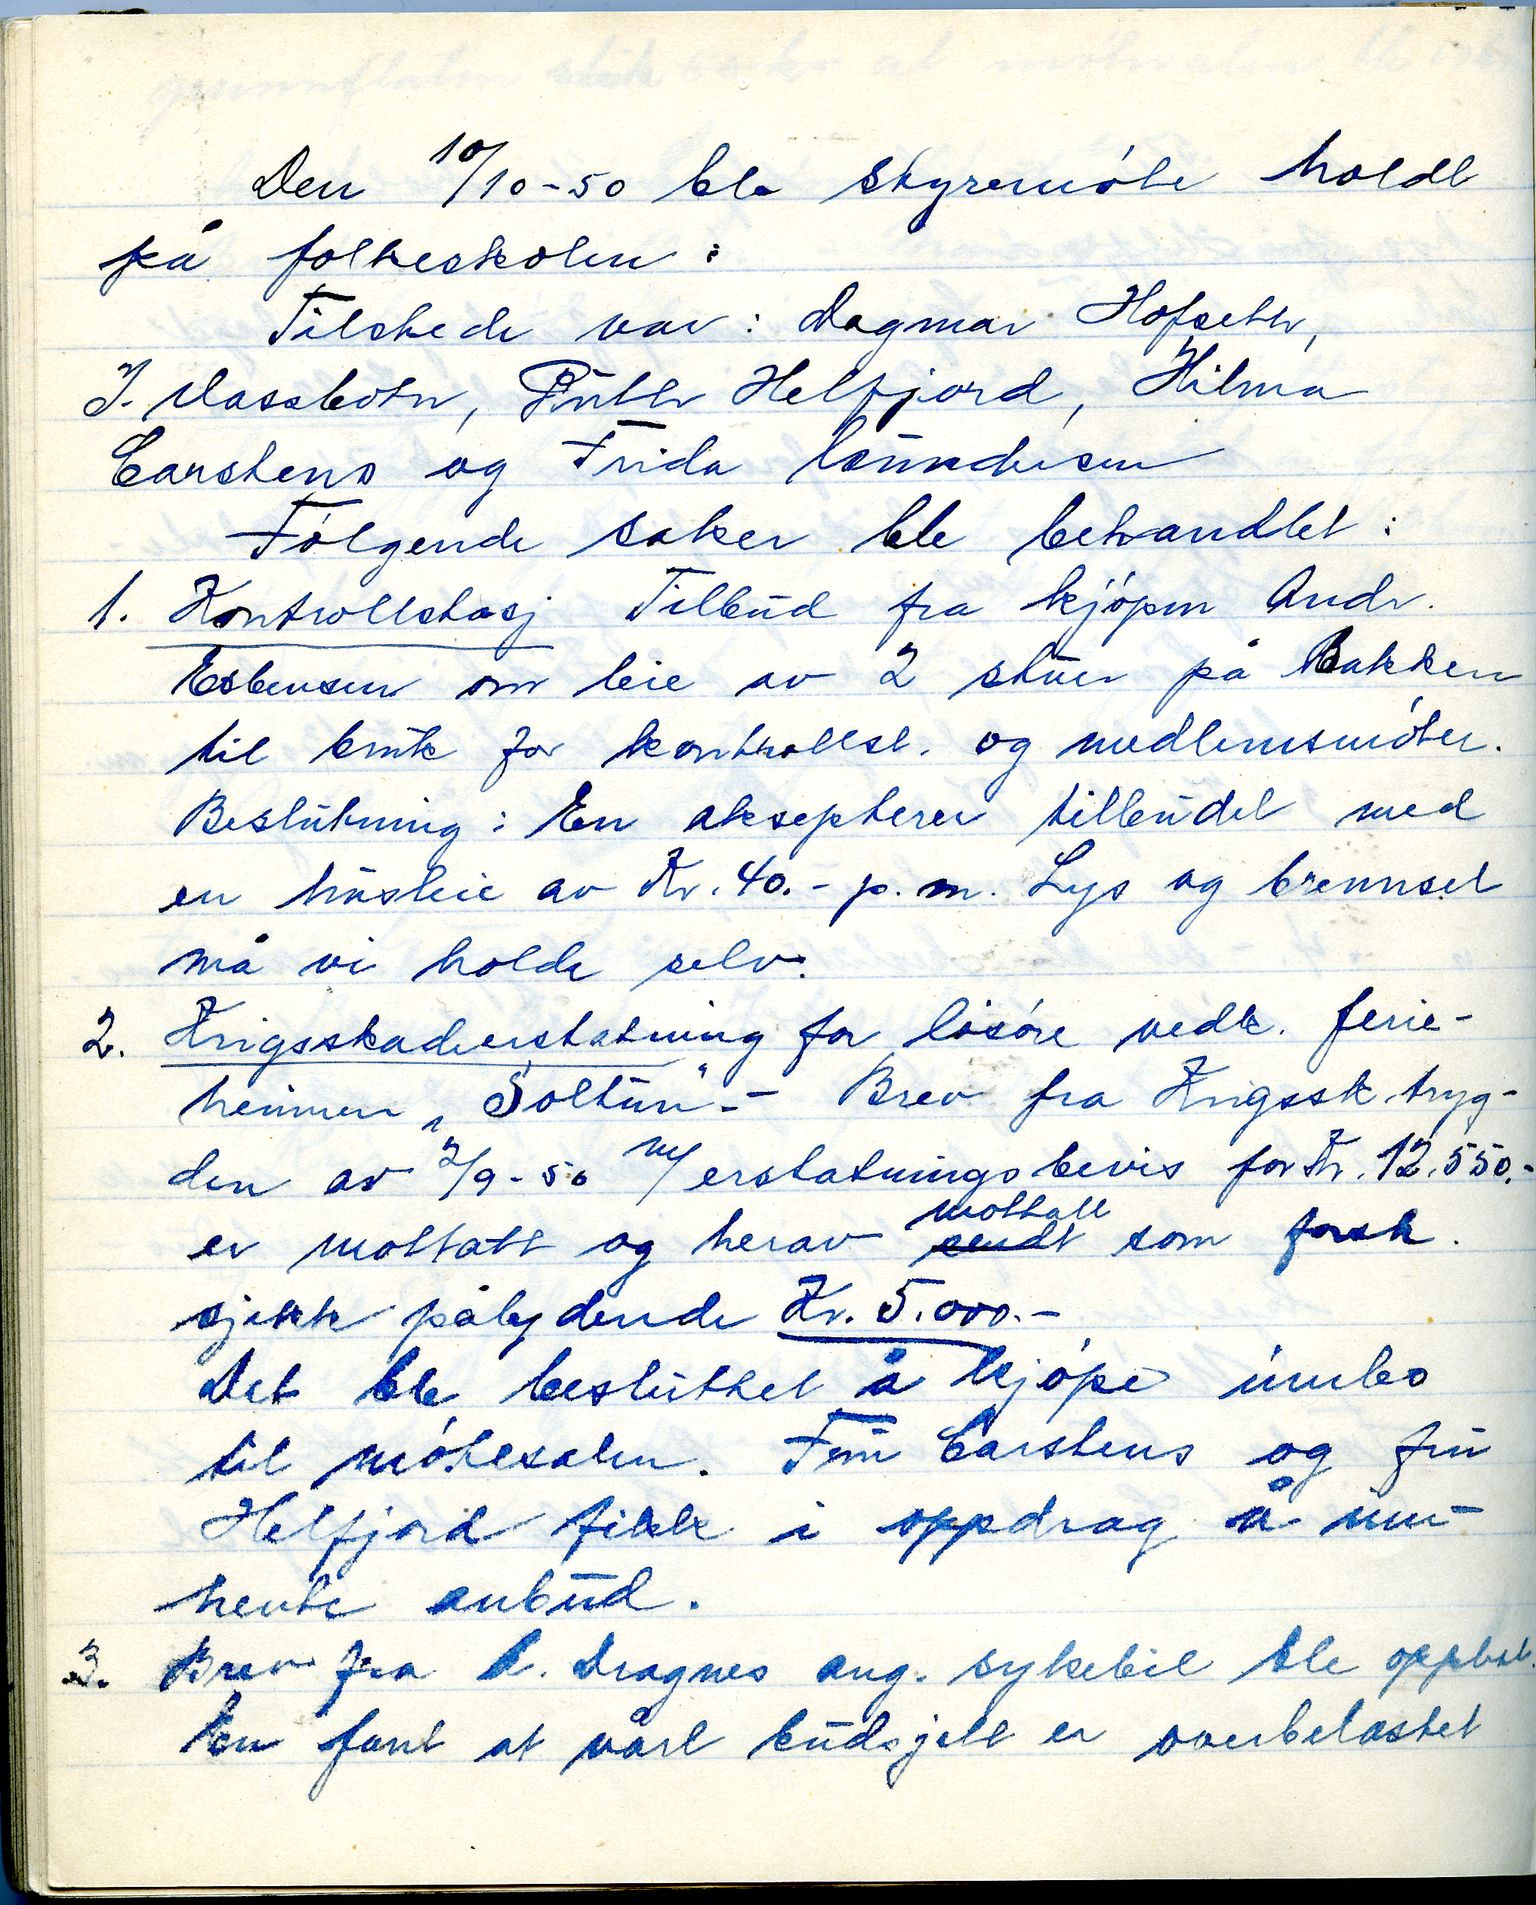 Den 10/10-50 ble styremöte holdt
på folkeskolen :
Tilstede var : Dagmar Hofseth,
J. Vassbotn, Ruth Helfjord, Hilma
Carstens og Frida
Fölgende saker ble behandlet :
1. Kontrollstasj Tilbud fra kjöpm Andr.
Esbensen om leie av 2 stuer på Bakken
til bruk for kontrollst. og medlemsmöter.
Beslutning : En aksepterer tilbudet med
en husleie av Kr. 40.- p. m. Lys og brennsel
må vi holde selv.
2. Krigsskadeerstatning for lösöre vedk. ferie-
heimen „Soltun".- Brev fra Krigssk. tryg-
den av 2/9-50 m/erstatningsbevis for Kr. 12.550.-
er mottatt og herav sendt mottatt som forsk.
sjekk pålydende Kr. 5.000.-
Det ble besluttet å kjöpe innbo
til mötesalen. Fru Carstens og fru
Helfjord fikk i oppdrag å inn-
hente anbud.
3. Brev fra L. Dragnes ang. sykebil ble opplest.
En fant at vårt budsjett er overbelastet